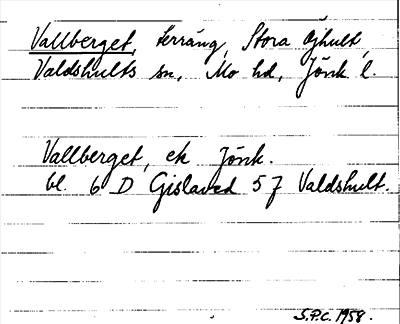 Vallberget, terräng, Stora Öjhult,
Valdshults sn, Mo hd, Jönk l.
Vallberget, ek Jönk.
bl. 6 D Gislaved 5 f Valdshult.
S.P.C. 1958.